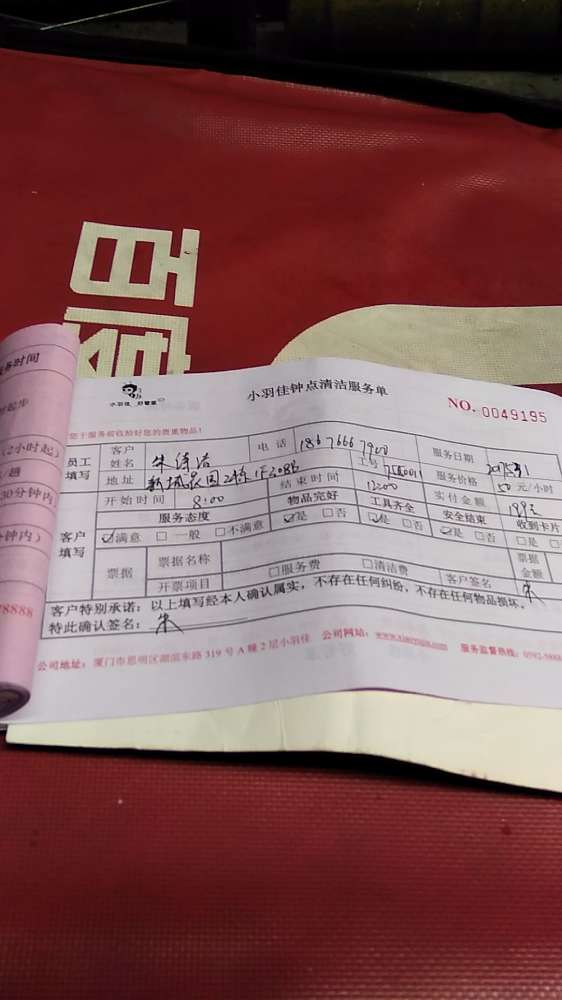 务时间
起步
(2小时起)
/趟
30分钟内
钟内)
78888
小羽佳 好管家
小羽佳钟点清洁服务单
NO. 0049195
您于服务前收拾好您的贵重物品!
员工填写 客户姓名 电话 186 7666 7900 服务日期
地址 工号 服务价格 50 元/小时
客户填写 开始时间 8:00 结束时间 12:00 实付金额
服务态度 物品完好 工具齐全 安全结束 收到卡片
☑满意 □一般 □不满意 ☑是 □否 ☑是 □否 ☑是 □否 □是 □
票据 票据名称 票据金额
开票项目 □服务费 □清洁费 客户签名 朱
客户特别承诺:以上填写经本人确认属实,不存在任何纠纷,不存在任何物品损坏。
特此确认签名: 朱
公司地址:厦门市思明区湖滨东路 319 号 A 幢 2 层小羽佳 公司网站: 服务监督热线:0592-5888